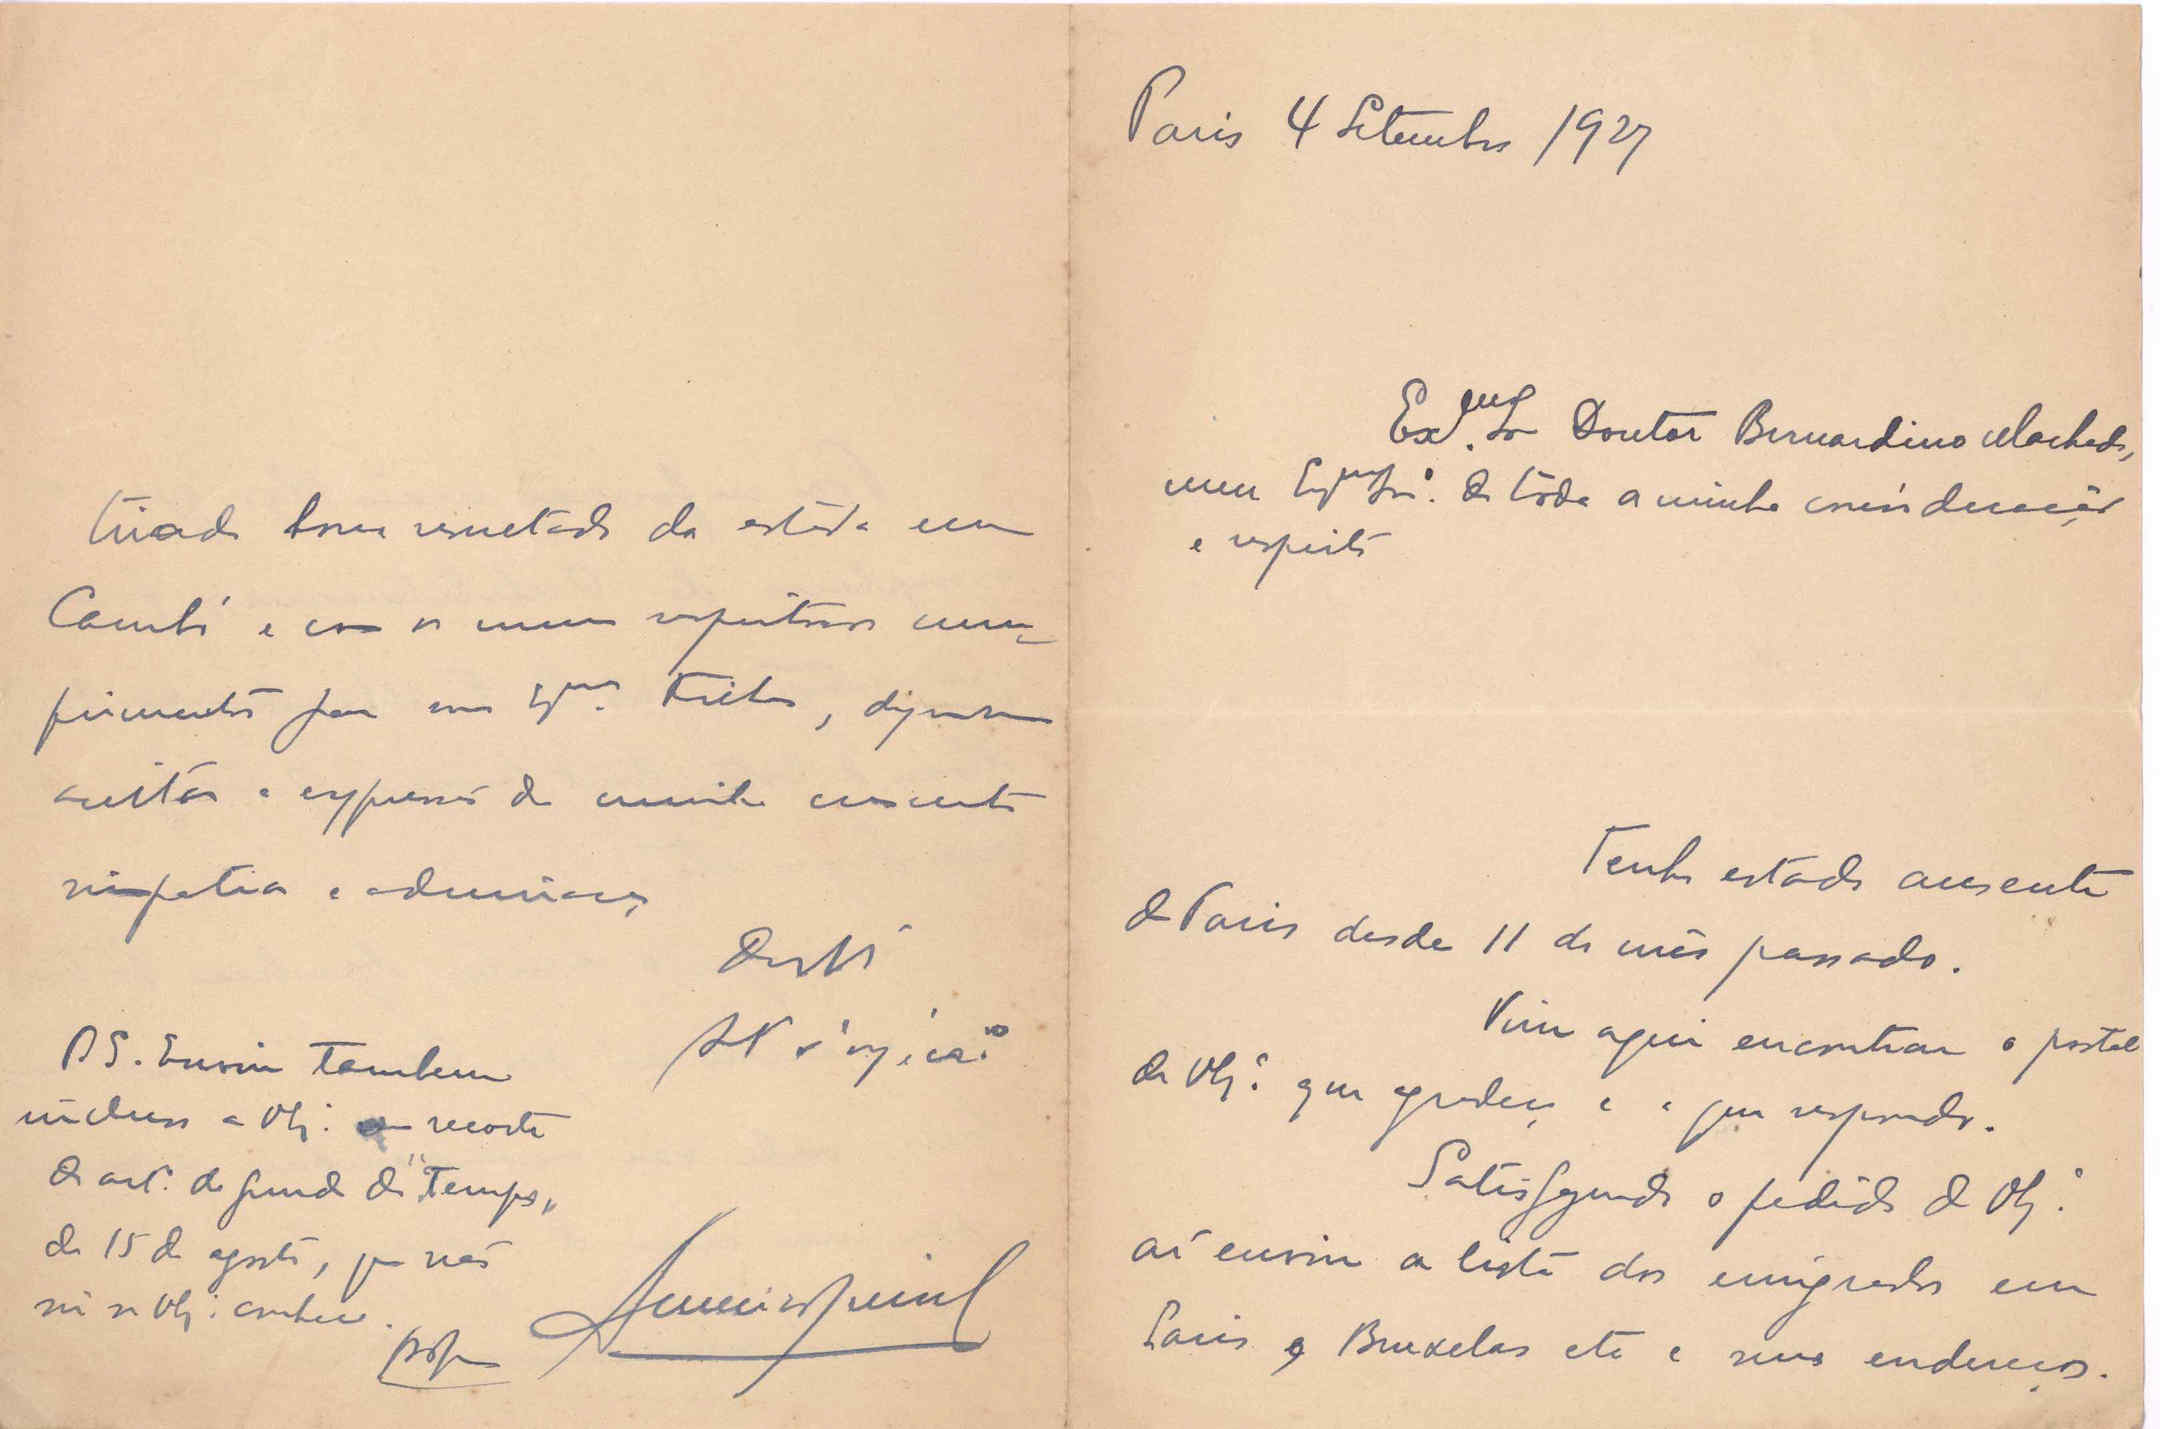 Paris 4 Setembro 1927
Ex.mo Sr Doutor Bernardino Machado,
meu Exmo Sr. de toda a minha consideração
e respeito
Tenho estado ausente
de Paris desde 11 do mês passado.
Vim aqui encontrar o postal
de V. Ex.ª que agradeço e a que respondo.
Satisfazendo o pedido de V. Ex.ª
aí envio a lista dos emigrados em
Paris e Bruxelas etc e seus endereços.
bom resultado da estada em
Cambó e com os meus respeitosos cum-
primentos para sua Exma. Família, digne-se
aceitar a expressão da minha
simpatia e admiração
PS. Envio tambem
incluso a V. Ex.ª recorte
do art.º de fundo do "Temps"
de 15 de agosto, que não
sei se V. Ex.ª conhece.